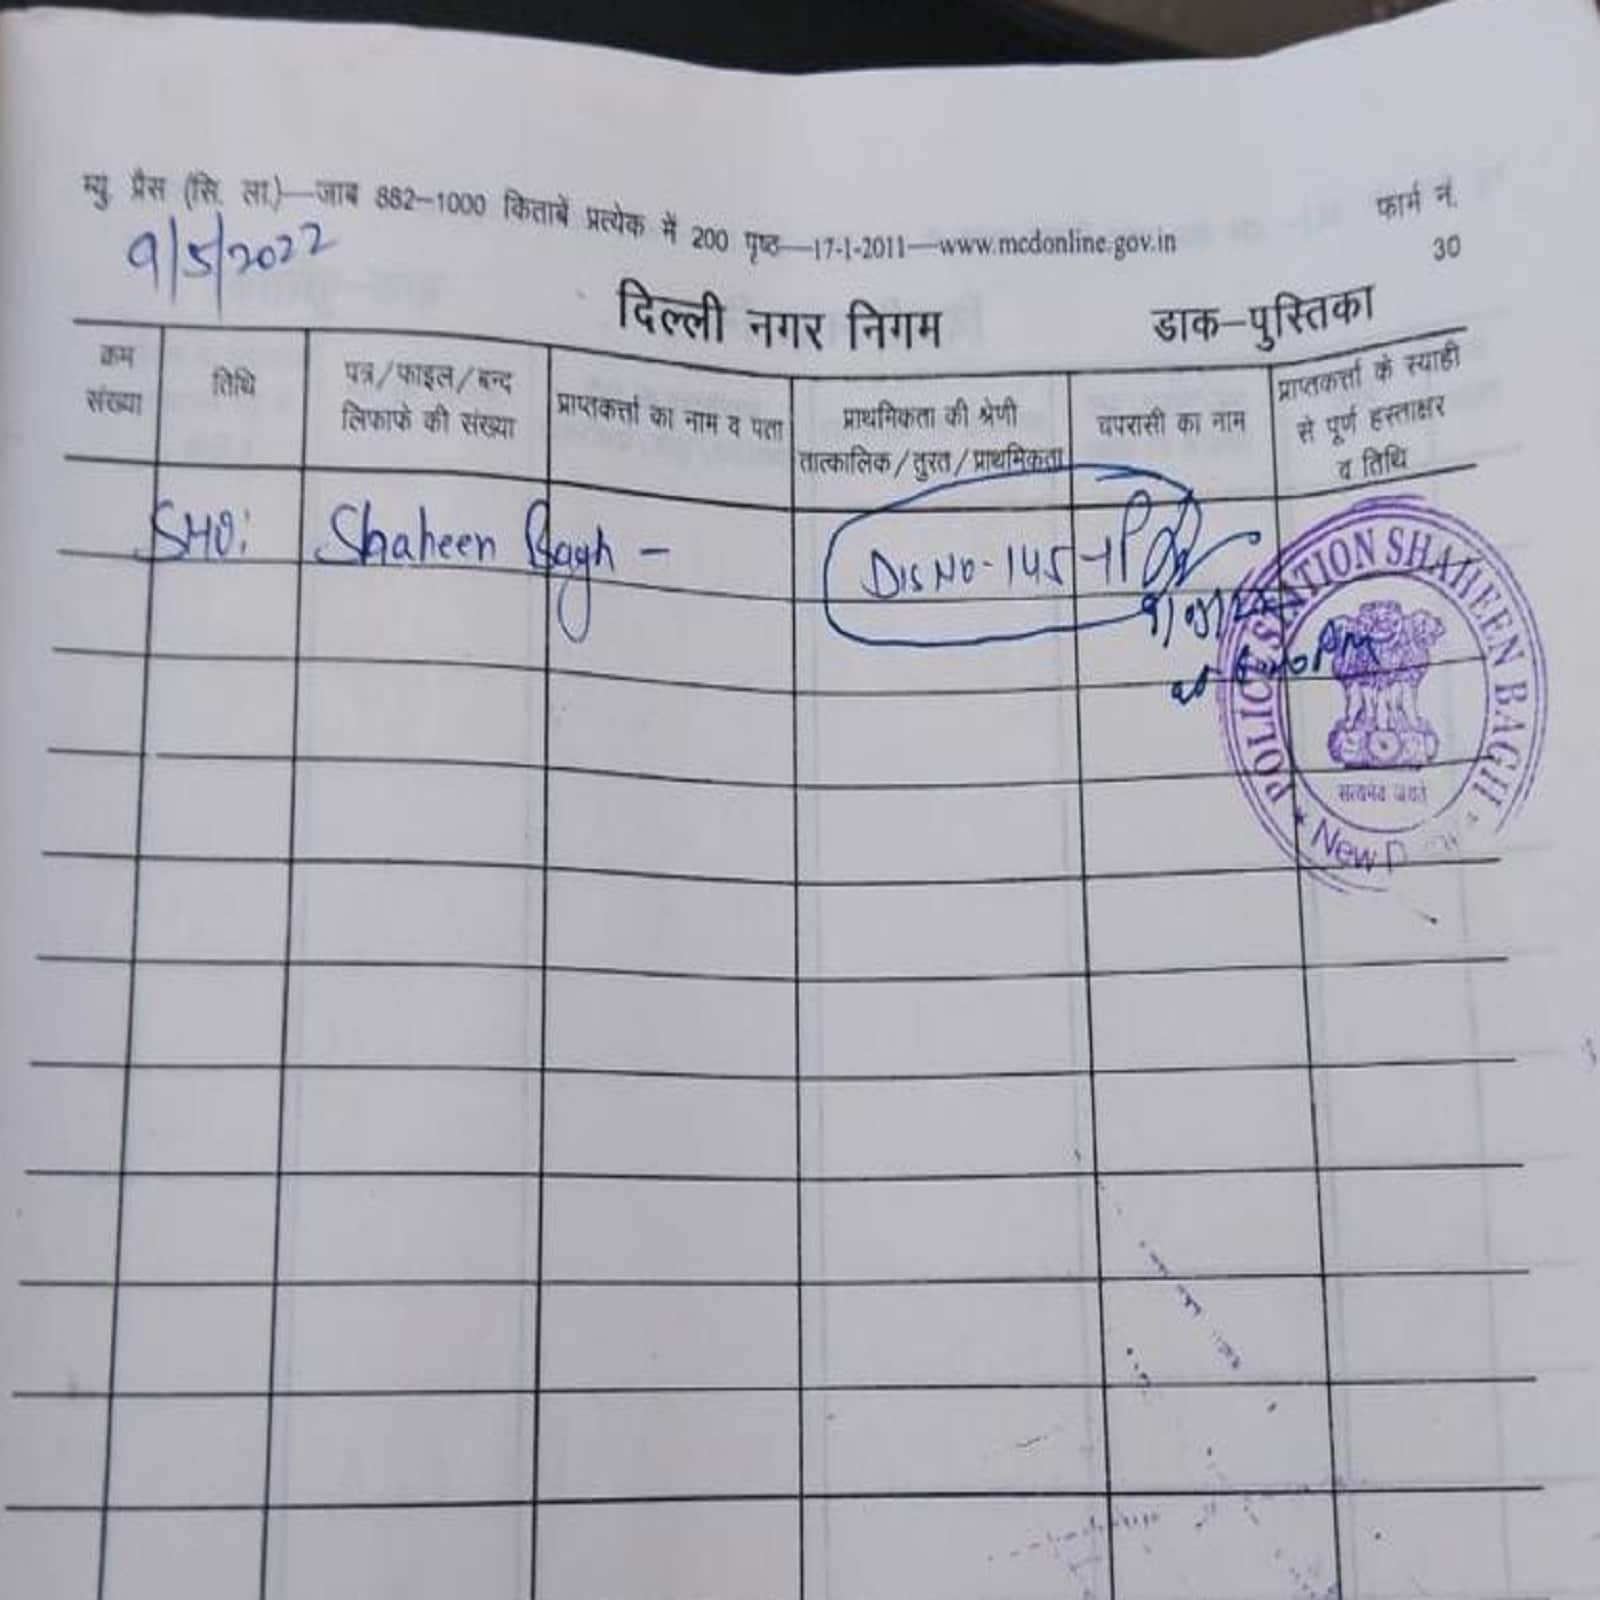 म्यु. प्रैस (सि. ला.)—जाब 882-1000 किताबें प्रत्येक में 200 पृष्ठ—17-1-2011—www.mcdonline.gov.in
फार्म नं.
30
9/5/2022
दिल्ली नगर निगम
डाक-पुस्तिका
क्रम
संख्या
तिथि
पत्र/फाइल/बन्द
लिफाफे की संख्या
प्राप्तकर्त्ता का नाम व पता
प्राथमिकता की श्रेणी
तात्कालिक/तुरत/प्राथमिकता
चपरासी का नाम
प्राप्तकर्त्ता के स्याही
से पूर्ण हस्ताक्षर
व तिथि
SHO: Shaheen Bagh -
Dis No- 145
PM
POLICE STATION SHAHEEN BAGH
सत्यमेव जयते
New